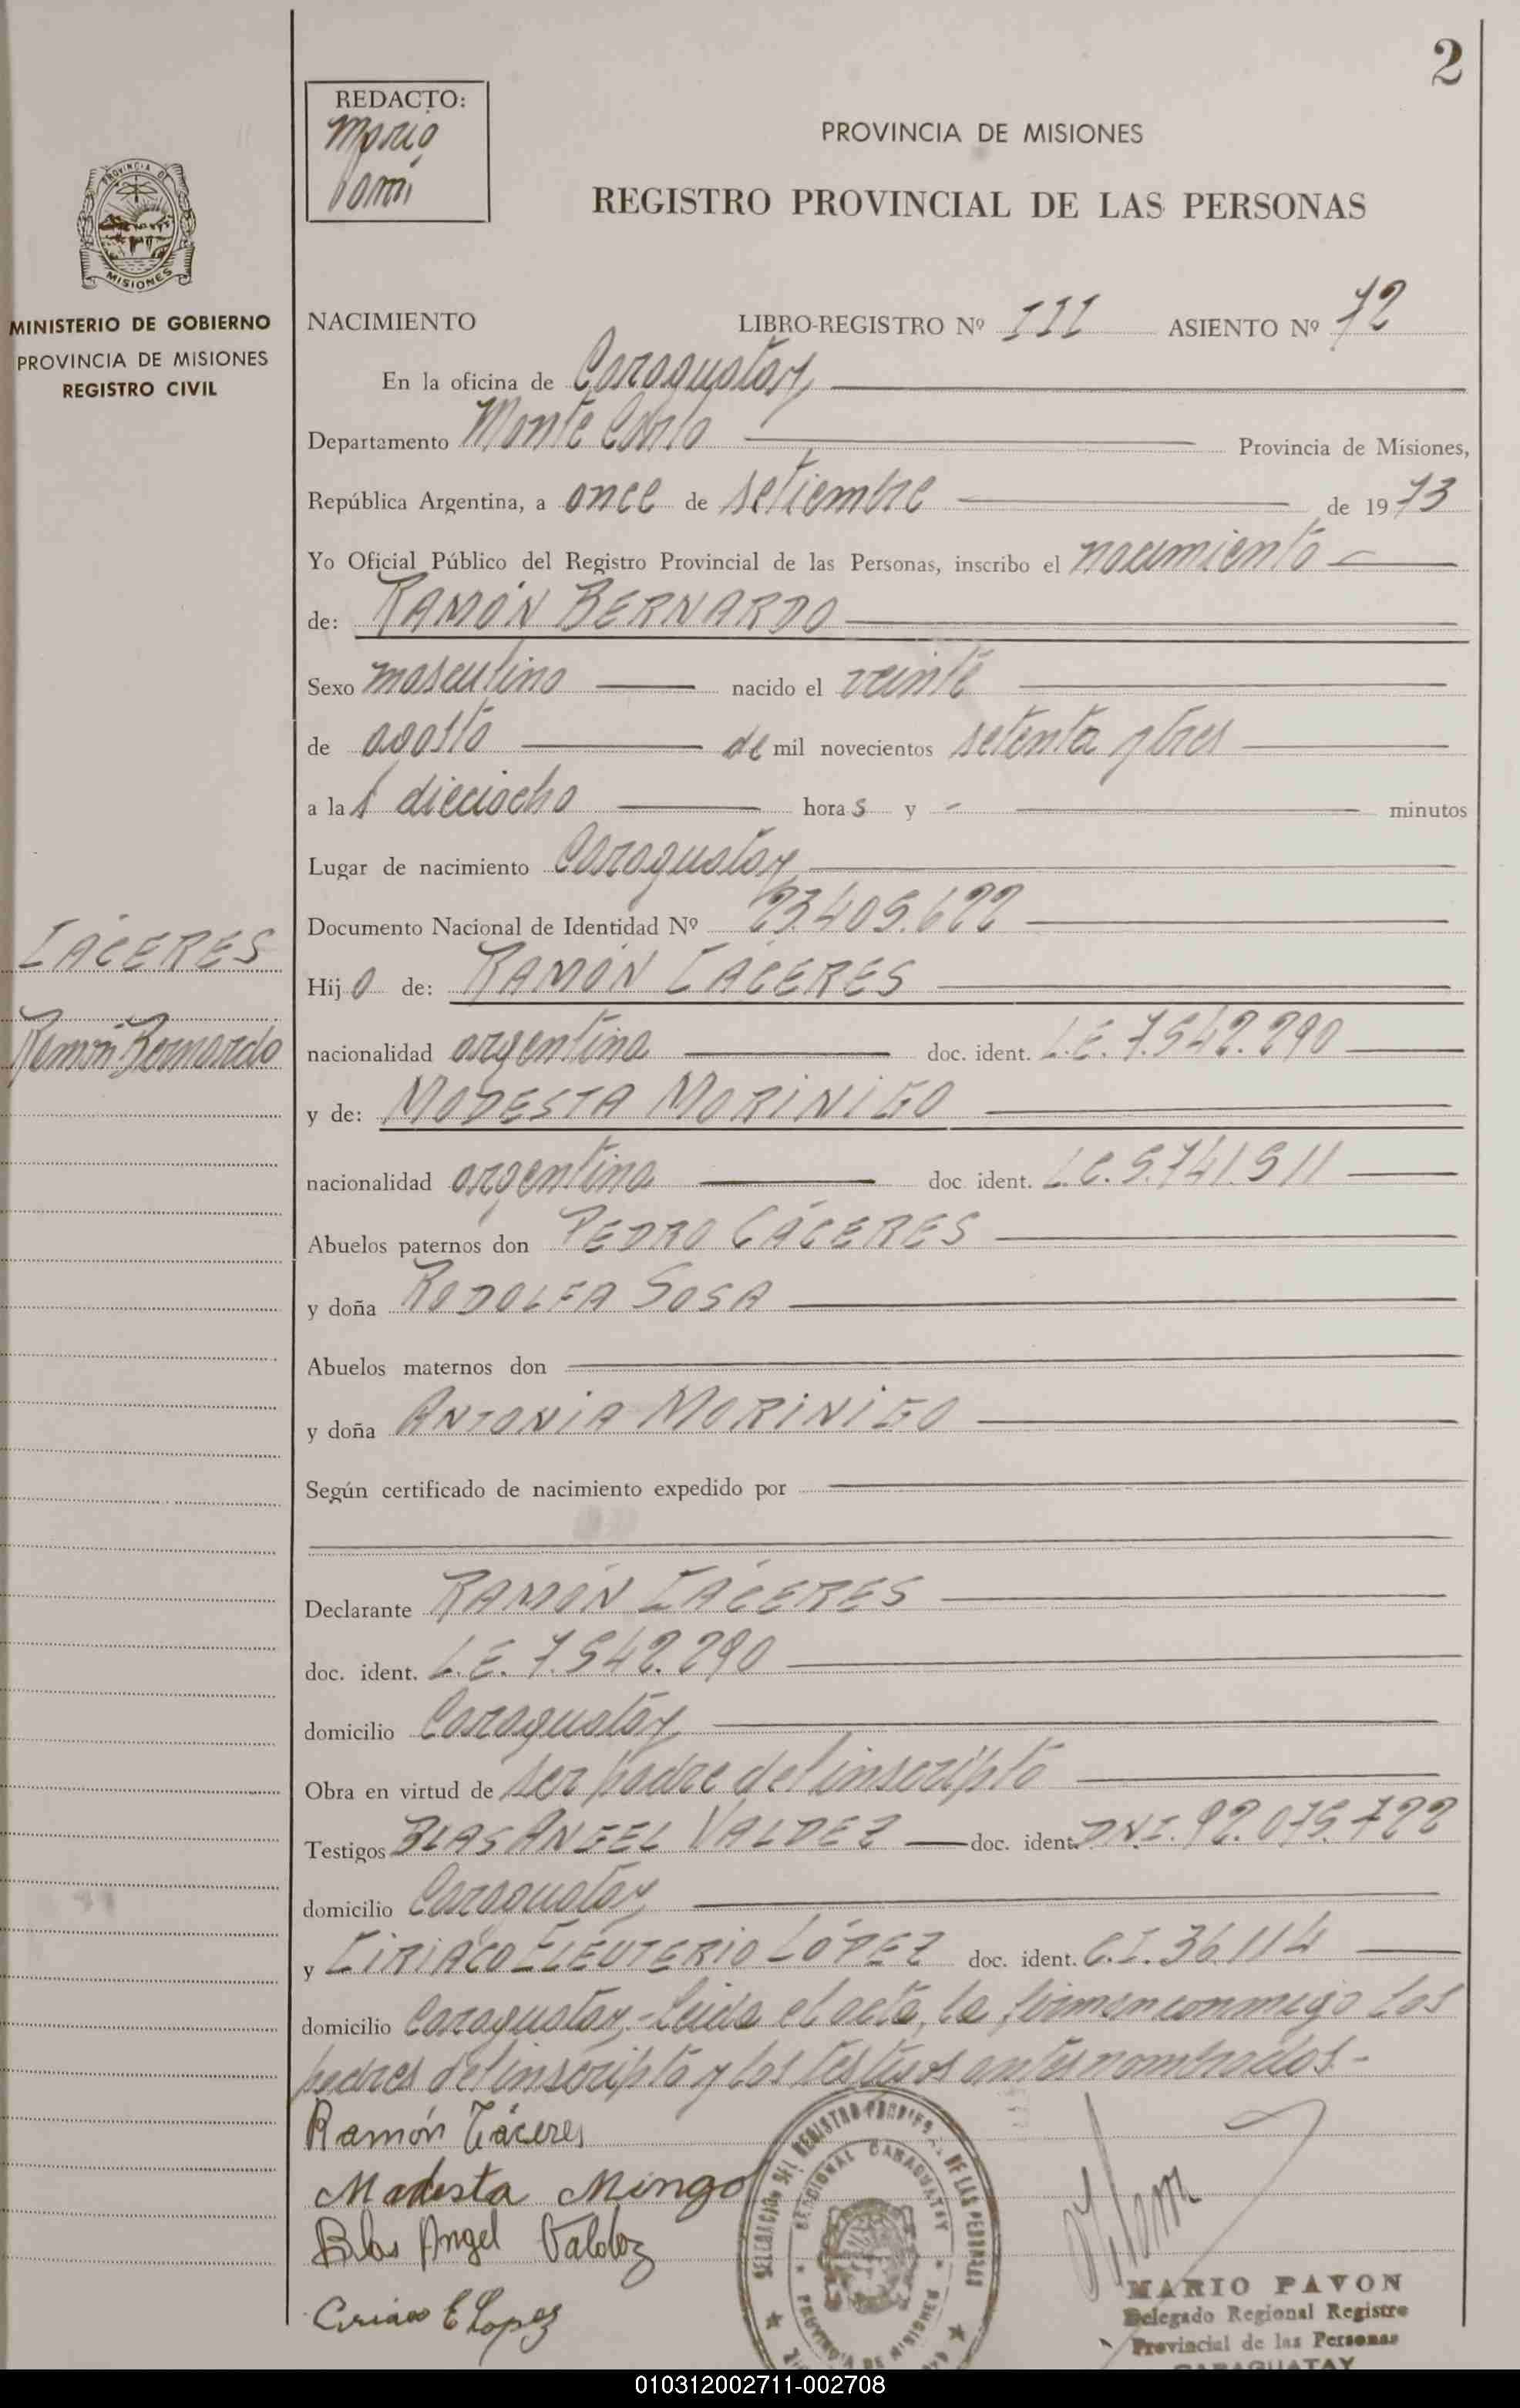 2
REDACTO:
Mario
PROVINCIA DE MISIONES
REGISTRO PROVINCIAL DE LAS PERSONAS
PROVINCIA DE
MISIONES
MINISTERIO DE GOBIERNO
PROVINCIA DE MISIONES
REGISTRO CIVIL
NACIMIENTO LIBRO-REGISTRO Nº III ASIENTO Nº 72
En la oficina de Caraguatay
Departamento Monte Carlo Provincia de Misiones,
República Argentina, a once de setiembre de 1973
Yo Oficial Público del Registro Provincial de las Personas, inscribo el nacimiento
de: RAMÓN BERNARDO
Sexo masculino nacido el veinte
de agosto de mil novecientos setenta y tres
a las dieciocho horas y - minutos
Lugar de nacimiento Caraguatay
Documento Nacional de Identidad Nº 23.409.622
CÁCERES
Hijo de: RAMÓN CÁCERES
Ramón Bernardo
nacionalidad argentina doc. ident. L.E. 7.542.290
y de: MODESTA MORINIGO
nacionalidad argentina doc. ident. L.C. 5.741.911
Abuelos paternos don PEDRO CÁCERES
y doña RODOLFA SOSA
Abuelos maternos don
y doña ANTONIA MORINIGO
Según certificado de nacimiento expedido por
Declarante RAMÓN CÁCERES
doc. ident. L.E. 7.542.290
domicilio Caraguatay
Obra en virtud de ser padre del inscripto
Testigos BLAS ANGEL VALDEZ doc. ident. D.N.I. 92.075.722
domicilio Caraguatay
y CIRIACO ELEUTERIO LÓPEZ doc. ident. C.I. 36.114
domicilio Caraguatay.- Leída el acta, la firman conmigo los
padres del inscripto y los testigos antes nombrados.-
Ramón Cáceres
Modesta Mingo
Blas Angel Valdez
Ciriaco E Lopez
DELEGACION DEL REGISTRO PROVINCIAL DE LAS PERSONAS
SECCIONAL CARAGUATAY
PROVINCIA DE MISIONES
MARIO PAVON
Delegado Regional Registro
Provincial de las Personas
CARAGUATAY
010312002711-002708